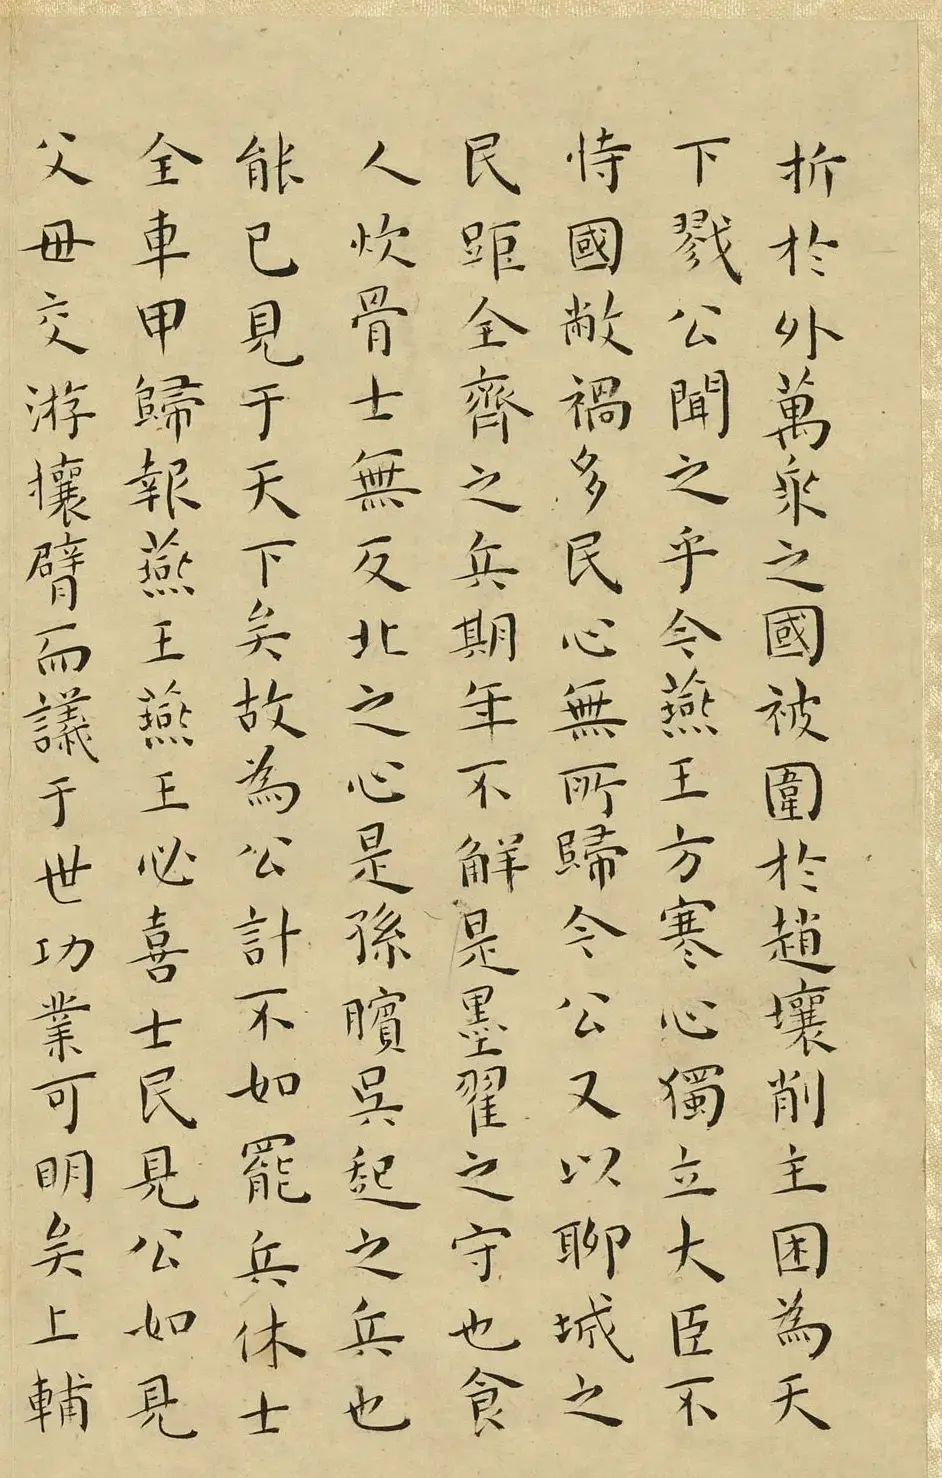 折於外萬衆之國被圍於趙壤削主困為天
下戮公聞之乎今燕王方寒心獨立大臣不
恃國敝禍多民心無所歸今公又以聊城之
民距全齊之兵期年不解是墨翟之守也食
人炊骨士無反北之心是孫臏吳起之兵也
能已見于天下矣故為公計不如罷兵休士
全車甲歸報燕王燕王必喜士民見公如見
父母交游攘臂而議于世功業可明矣上輔